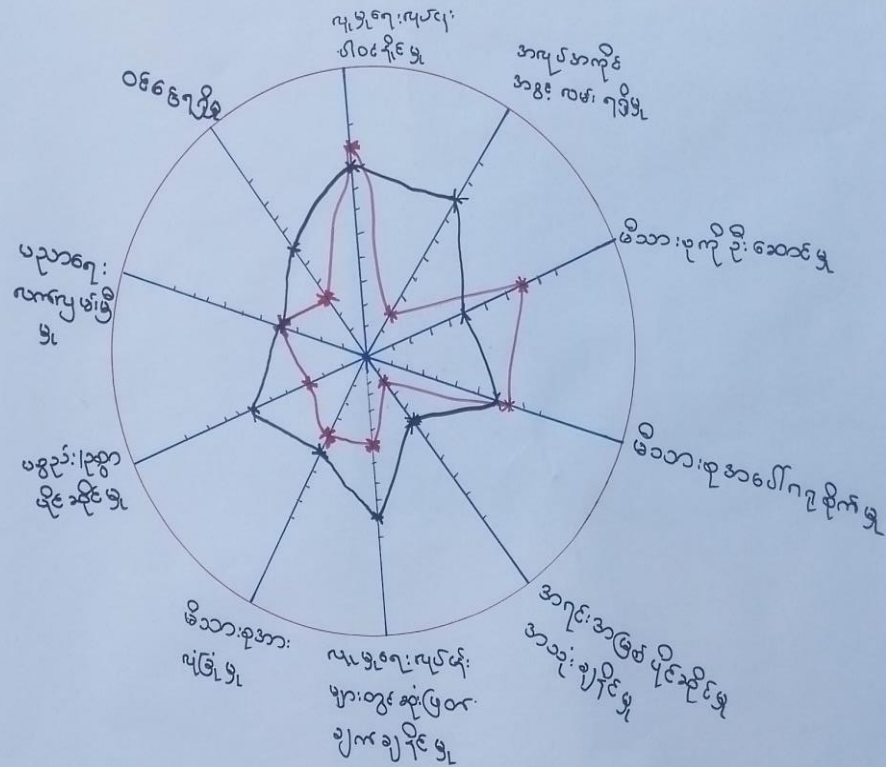 လူမှုရေးလုပ်ငန်း
ပါဝင်နိုင်မှု
အလုပ်အကိုင်
အခွင့်လမ်းရရှိမှု
မိသားစုကိုဦးဆောင်မှု
မိသားစုအပေါ်ဂရုစိုက်မှု
အရင်းအမြစ်ပိုင်ဆိုင်မှု
အသုံးချနိုင်မှု
လူမှုရေးလုပ်ငန်း
များတွင်ဆုံးဖြတ်
ချက်ချနိုင်မှု
မိသားစုအား
လုံခြုံမှု
ပစ္စည်းဥစ္စာ
ပိုင်ဆိုင်မှု
ပညာရေး
လက်လှမ်းမှီ
မှု
ဝင်ငွေရရှိမှု